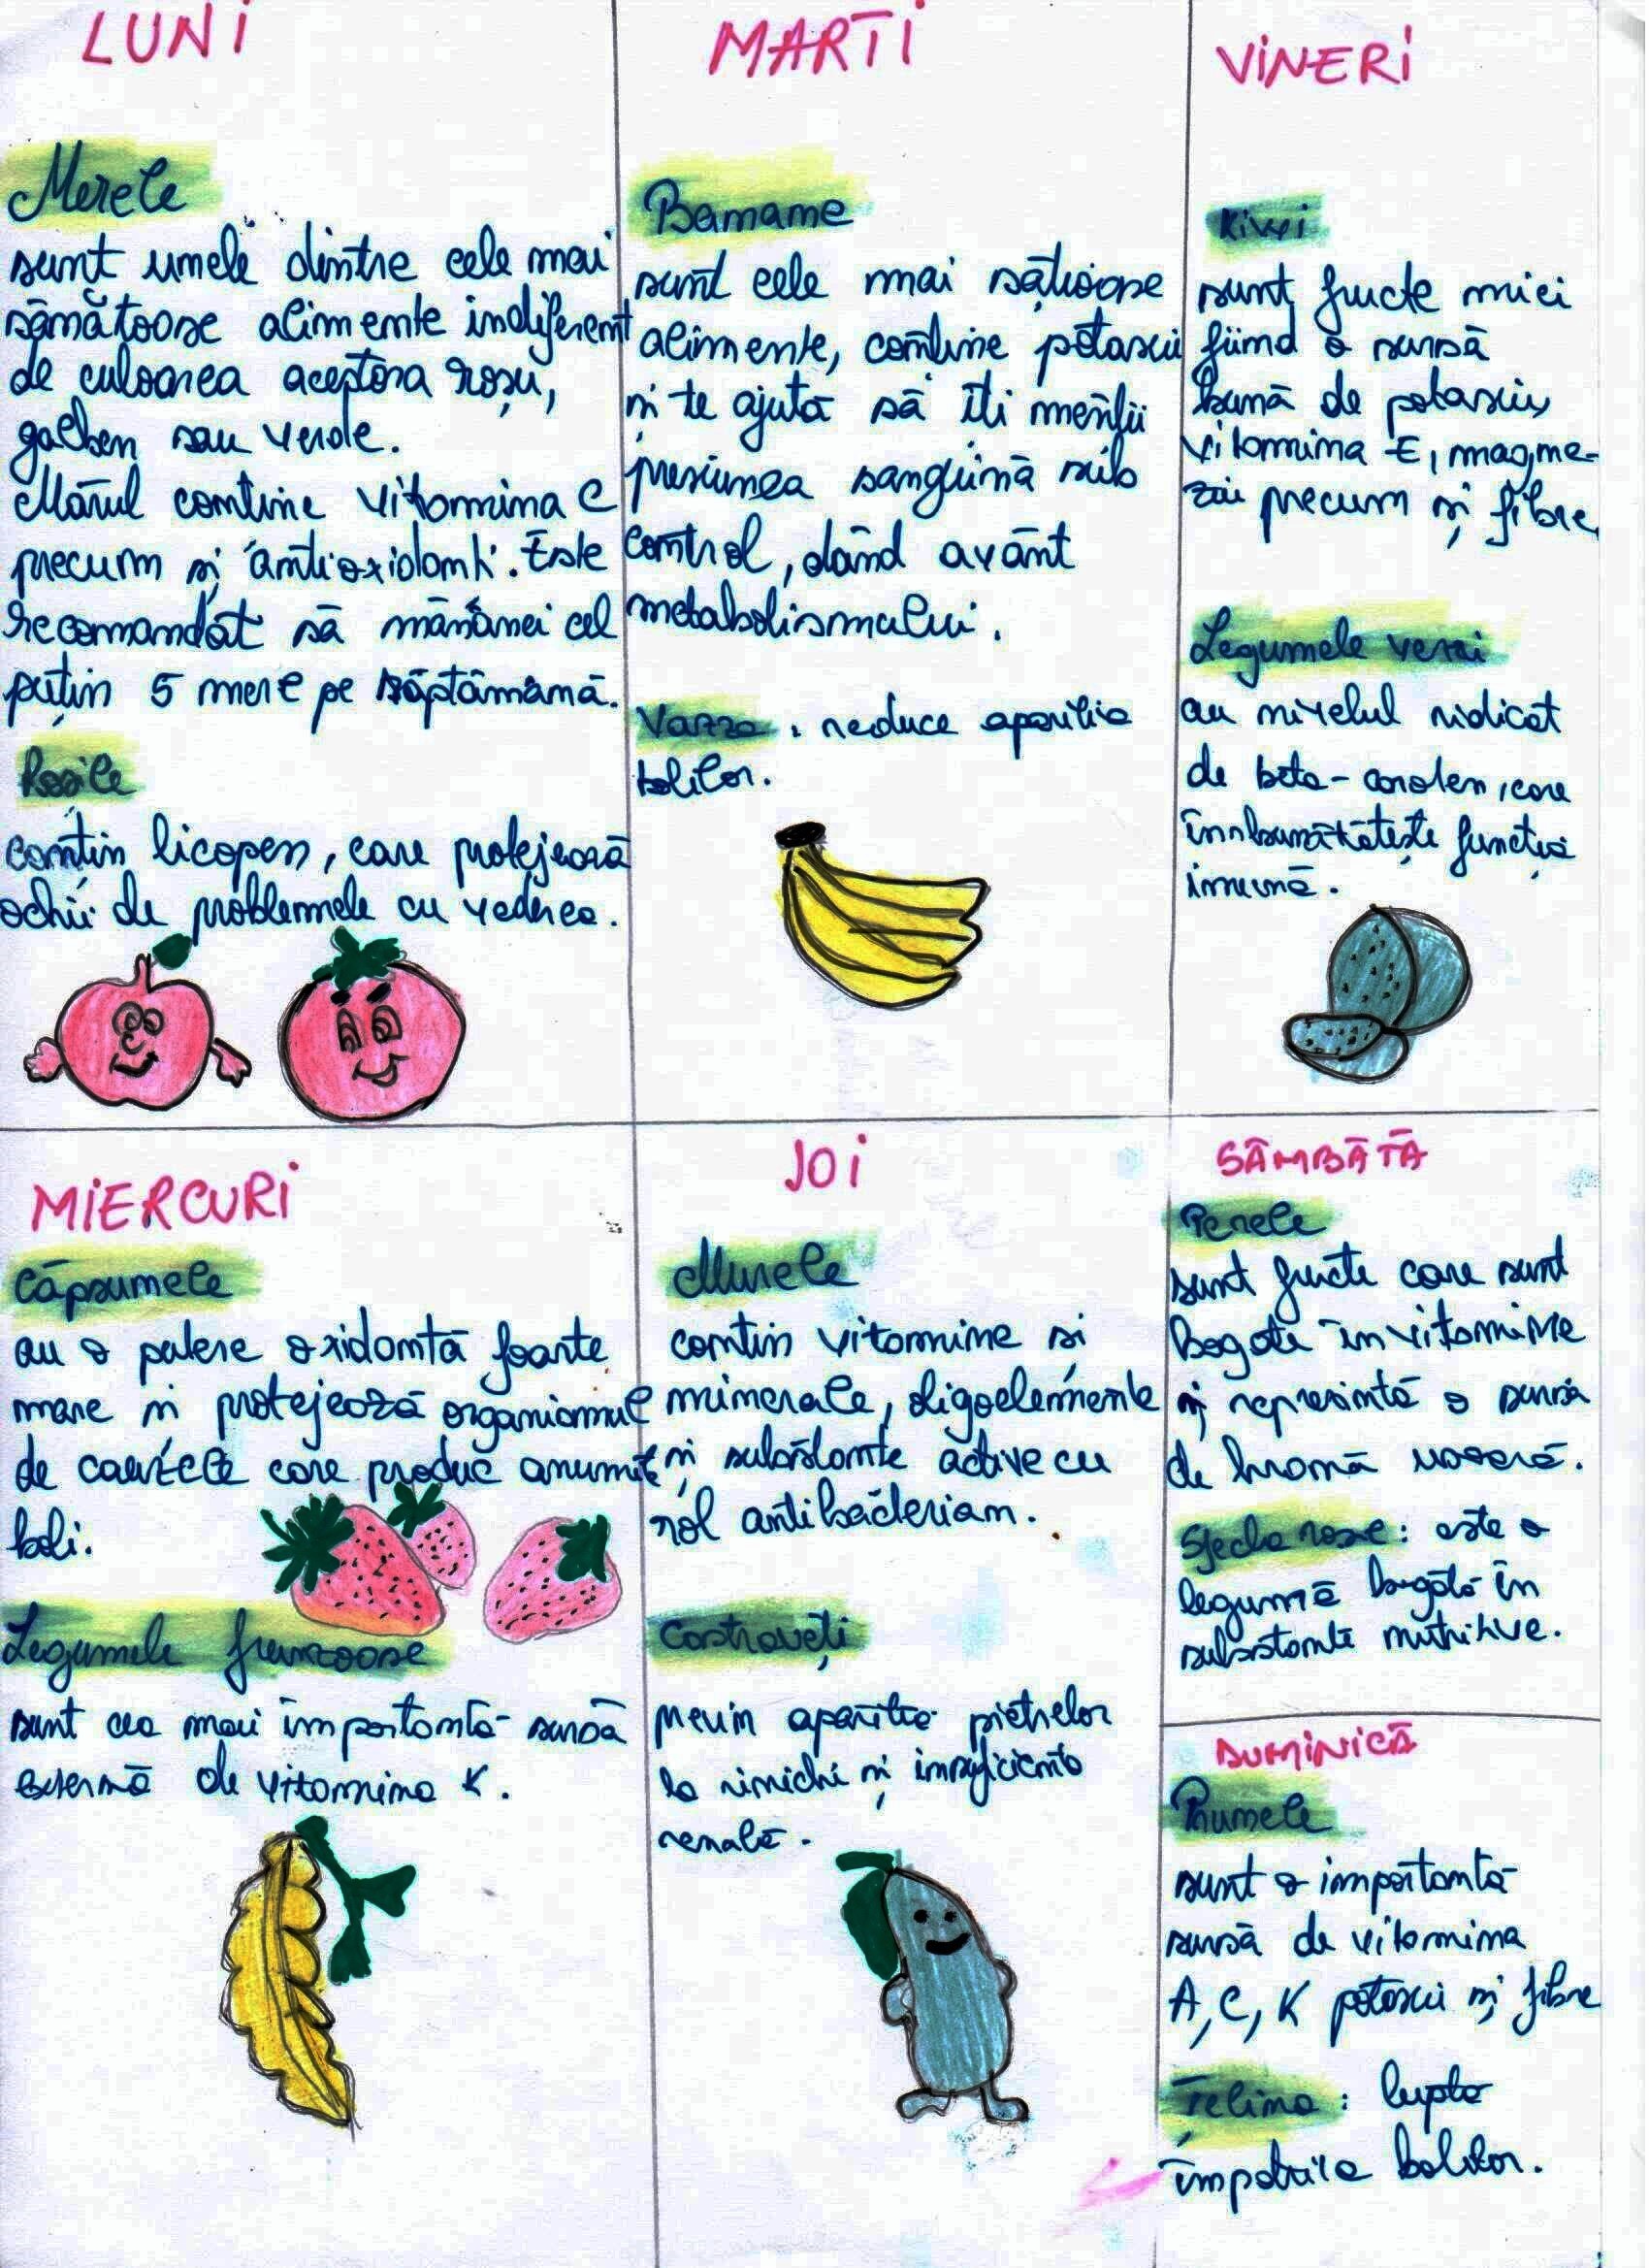 LUNI
Merele
sunt unele dintre cele mai
sănătoase alimente indiferent
de culoarea acestora roșu,
galben sau verde.
Mărul contine vitamina C
precum și antioxidanti. Este
recomandat să mănânci cel
puțin 5 mere pe săptămână.
Rosiile
contin licopen, care protejează
ochii de problemele cu vederea.
MARTI
Banane
sunt cele mai sățioase
alimente, contine potasiu
si te ajută să iti mentii
presiunea sanguină sub
control, dând avânt
metabolismului.
Varza : reduce aparitia
bolilor.
VINERI
Kiwi
sunt fructe mici
fiind o sursă
bună de potasiu,
vitamina E, magne-
ziu precum și fibre
Legumele verzi
au nivelul ridicat
de beta-caroten, care
înnbunătătește funcția
imună.
MIERCURI
Căpsunele
au o putere oxidantă foarte
mare si protejează organismul
de care produc anumite
boli.
Legumele frunzoase
sunt cea mai importantă sursă
externă de vitamina K.
JOI
Murele
contin vitamine si
minerale, oligoelemente
și substante active cu
rol antibacterian.
Castraveți
previn aparitia pietrelor
la rinichi și insuficienta
renală.
SÂMBĂTĂ
Perele
sunt fructe care sunt
bogate în vitamine
și reprezintă o sursă
de hrană usoară.
Sfecla rosie: este o
legumă bogată în
substante nutritive.
DUMINICĂ
Prunele
sunt o importantă
sursă de vitamina
A, C, K potasiu și fibre
Țelina : lupta
împotriva bolilor.